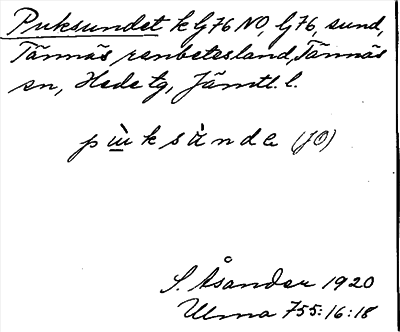 Puksundet k G76 NO, G76, sund,
Tännäs renbetesland, Tännäs
sn, Hede tg, Jämtl. l.
pùksùnda (JO)
S. Åsander 1920
Ulma 755:16:18